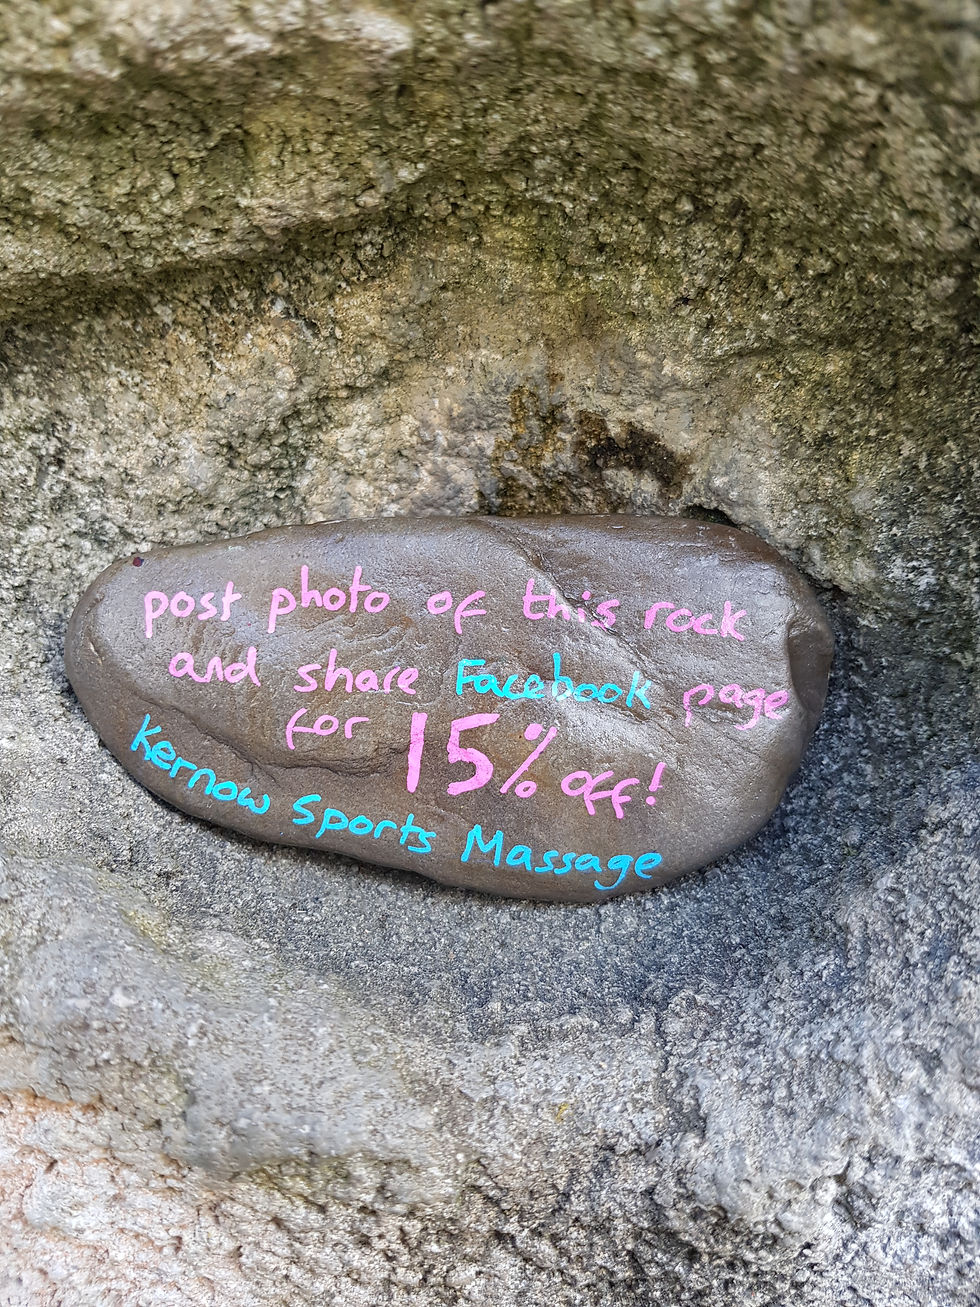 post photo of this rock
and share Facebook page
for 15% off!
Kernow Sports Massage